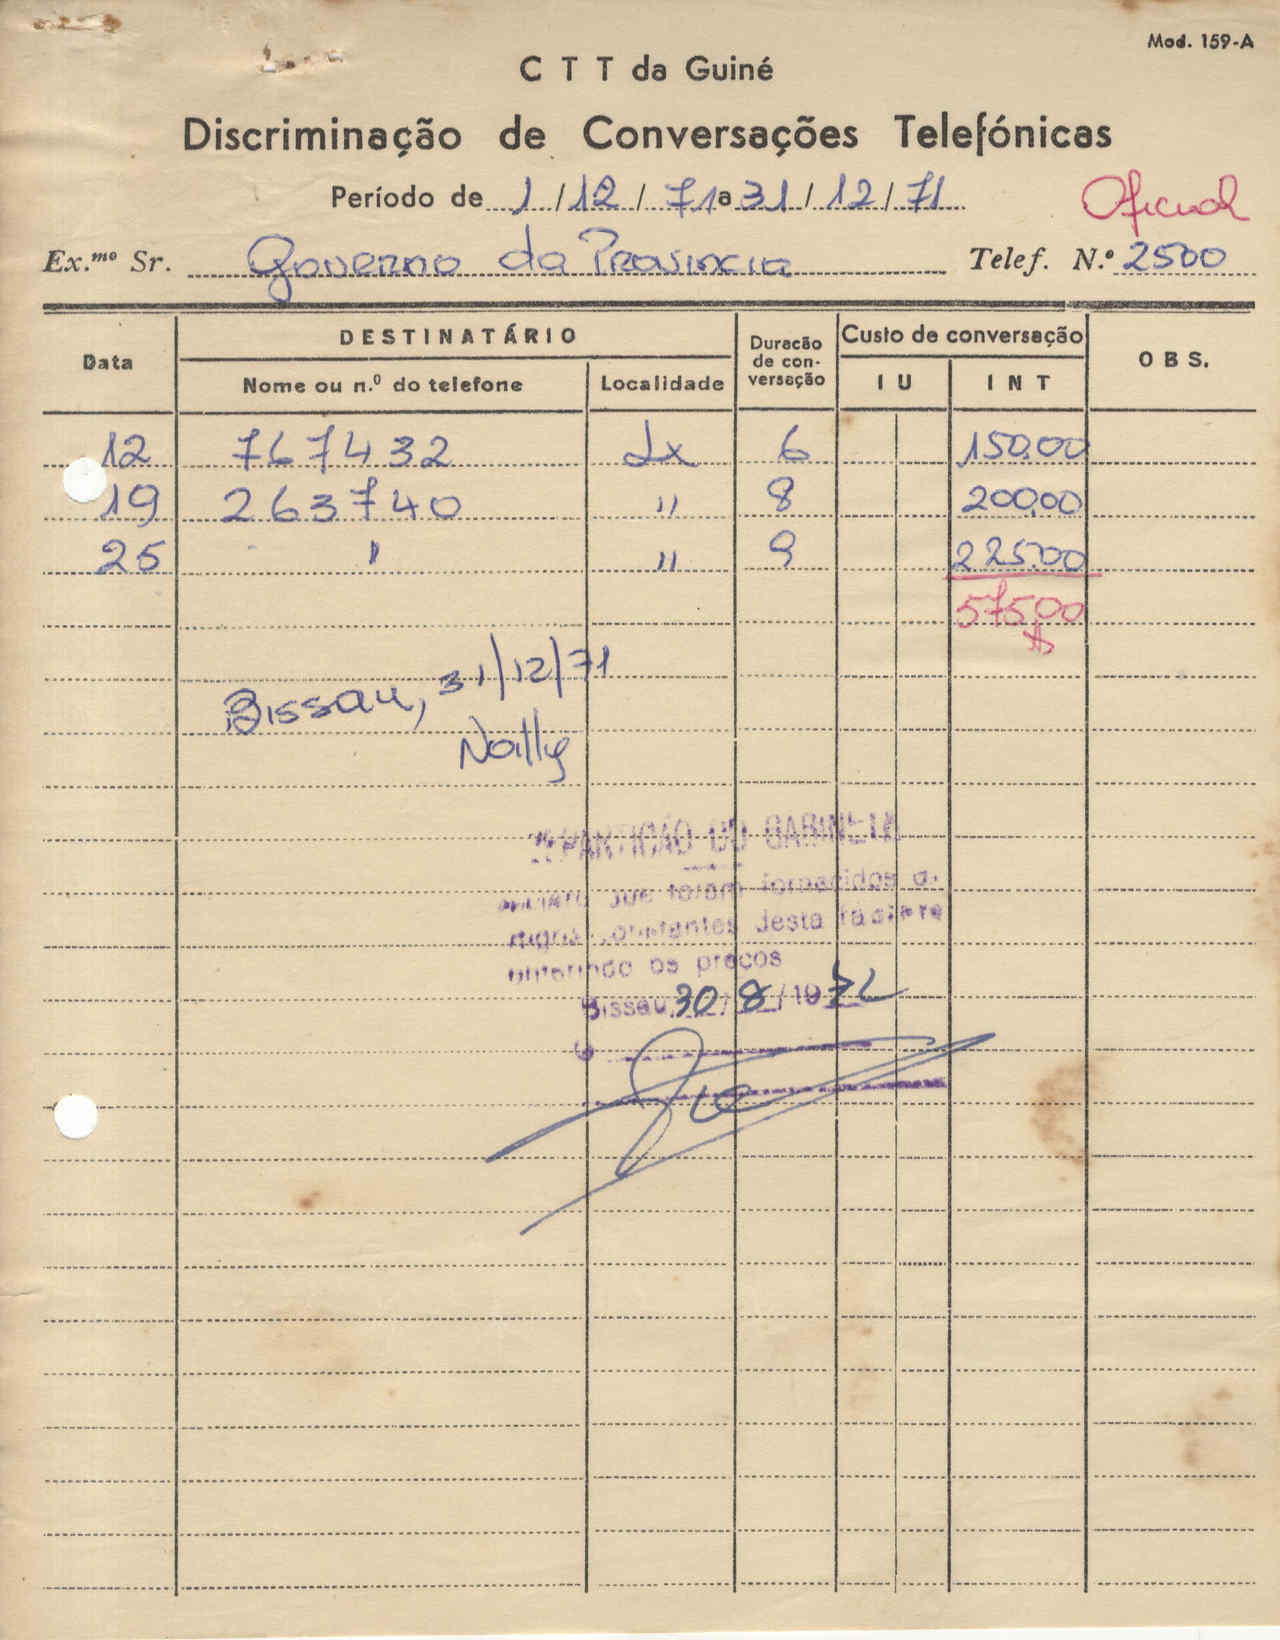 Mod. 159-A
C T T da Guiné
Discriminação de Conversações Telefónicas
Período de 1/12/71 a 31/12/71
Oficial
Ex.mo Sr. Governo da Provincia Telef. N.º 2500
Data DESTINATÁRIO Duracão de con-versação Custo de conversação OBS.
Nome ou n.º do telefone Localidade IU INT
12 767432 Lx 6 150.00
19 263740 " 8 200.00
25 " " 9 225.00
575.00
Bissau, 31/12/71
REPARTIÇÃO DO GABINETE
que foram fornecidos
constantes desta
os preços
Bissau 30/8/1972
O